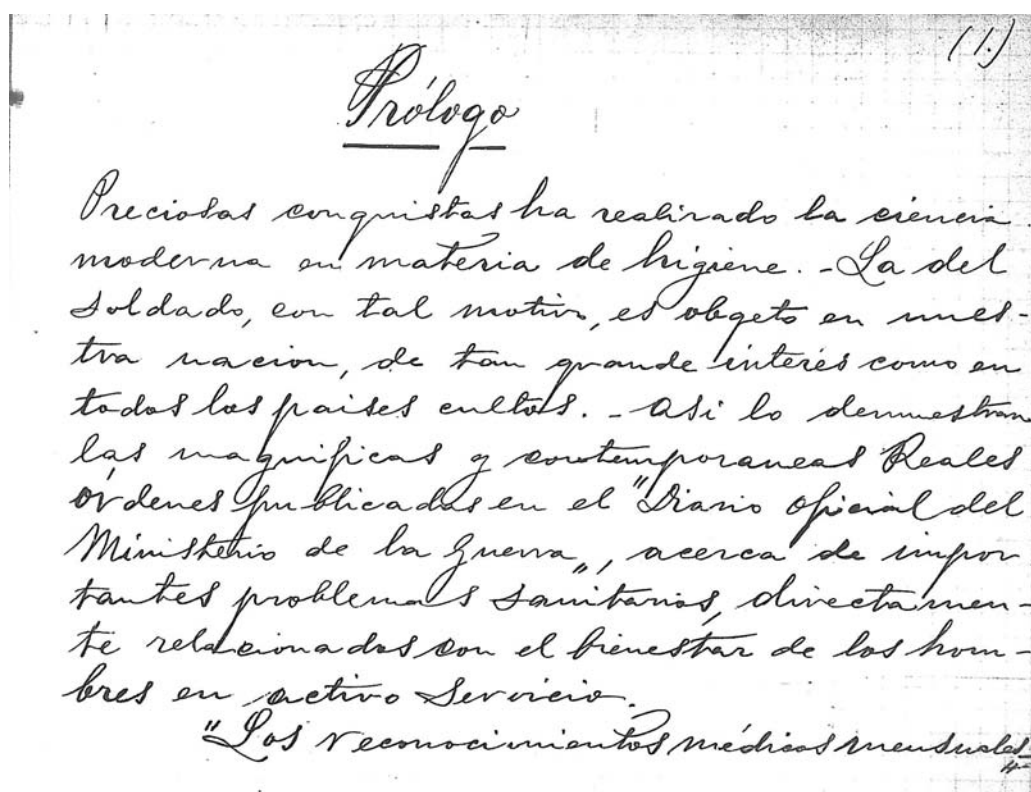 (1.)
Prólogo
Preciosas conquistas ha realizado la ciencia
moderna en materia de higiene. - La del
soldado, con tal motivo, es obgeto en nues-
tra nacion, de tan grande interés como en
todos los paises cultos. - Asi lo demuestran
las magnificas y contemporaneas Reales
órdenes publicadas en el "Diario oficial del
Ministerio de la Guerra", acerca de impor
tantes problemas sanitarios, directamen-
te relacionados con el bienestar de los hom-
bres en activo servicio.
"Los reconocimientos médicos mensuales